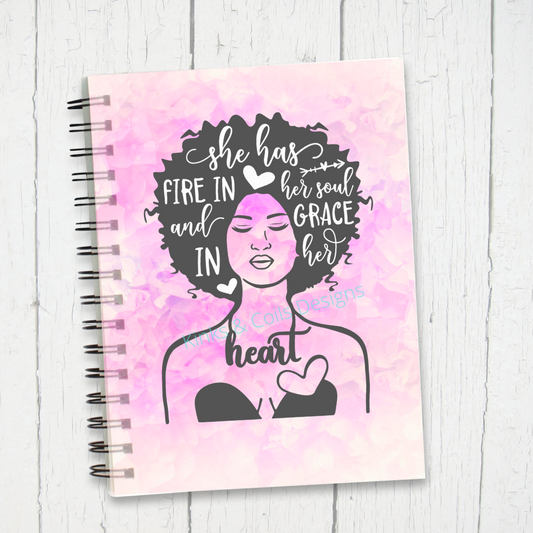 she has
FIRE IN her soul
and GRACE
IN her
heart
Kinks & Coils Designs